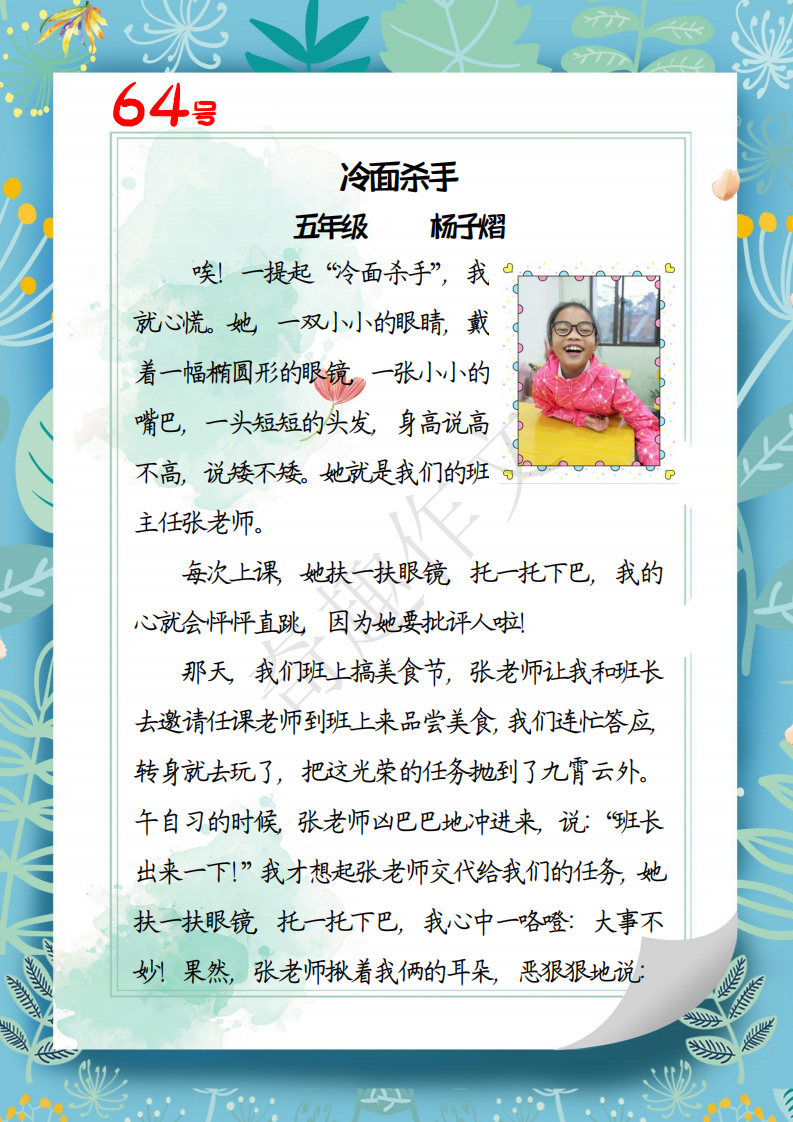 64号
冷面杀手
五年级 杨子熠
唉！一提起“冷面杀手”，我
就心慌。她，一双小小的眼睛，戴
着一幅椭圆形的眼镜，一张小小的
嘴巴，一头短短的头发，身高说高
不高，说矮不矮。她就是我们的班
主任张老师。
每次上课，她扶一扶眼镜，托一托下巴，我的
心就会怦怦直跳，因为她要批评人啦！
那天，我们班上搞美食节，张老师让我和班长
去邀请任课老师到班上来品尝美食，我们连忙答应，
转身就去玩了，把这光荣的任务抛到了九霄云外。
午自习的时候，张老师凶巴巴地冲进来，说：“班长
出来一下！”我才想起张老师交代给我们的任务，她
扶一扶眼镜，托一托下巴，我心中一咯噔：大事不
妙！果然，张老师揪着我俩的耳朵，恶狠狠地说：
奇趣作文